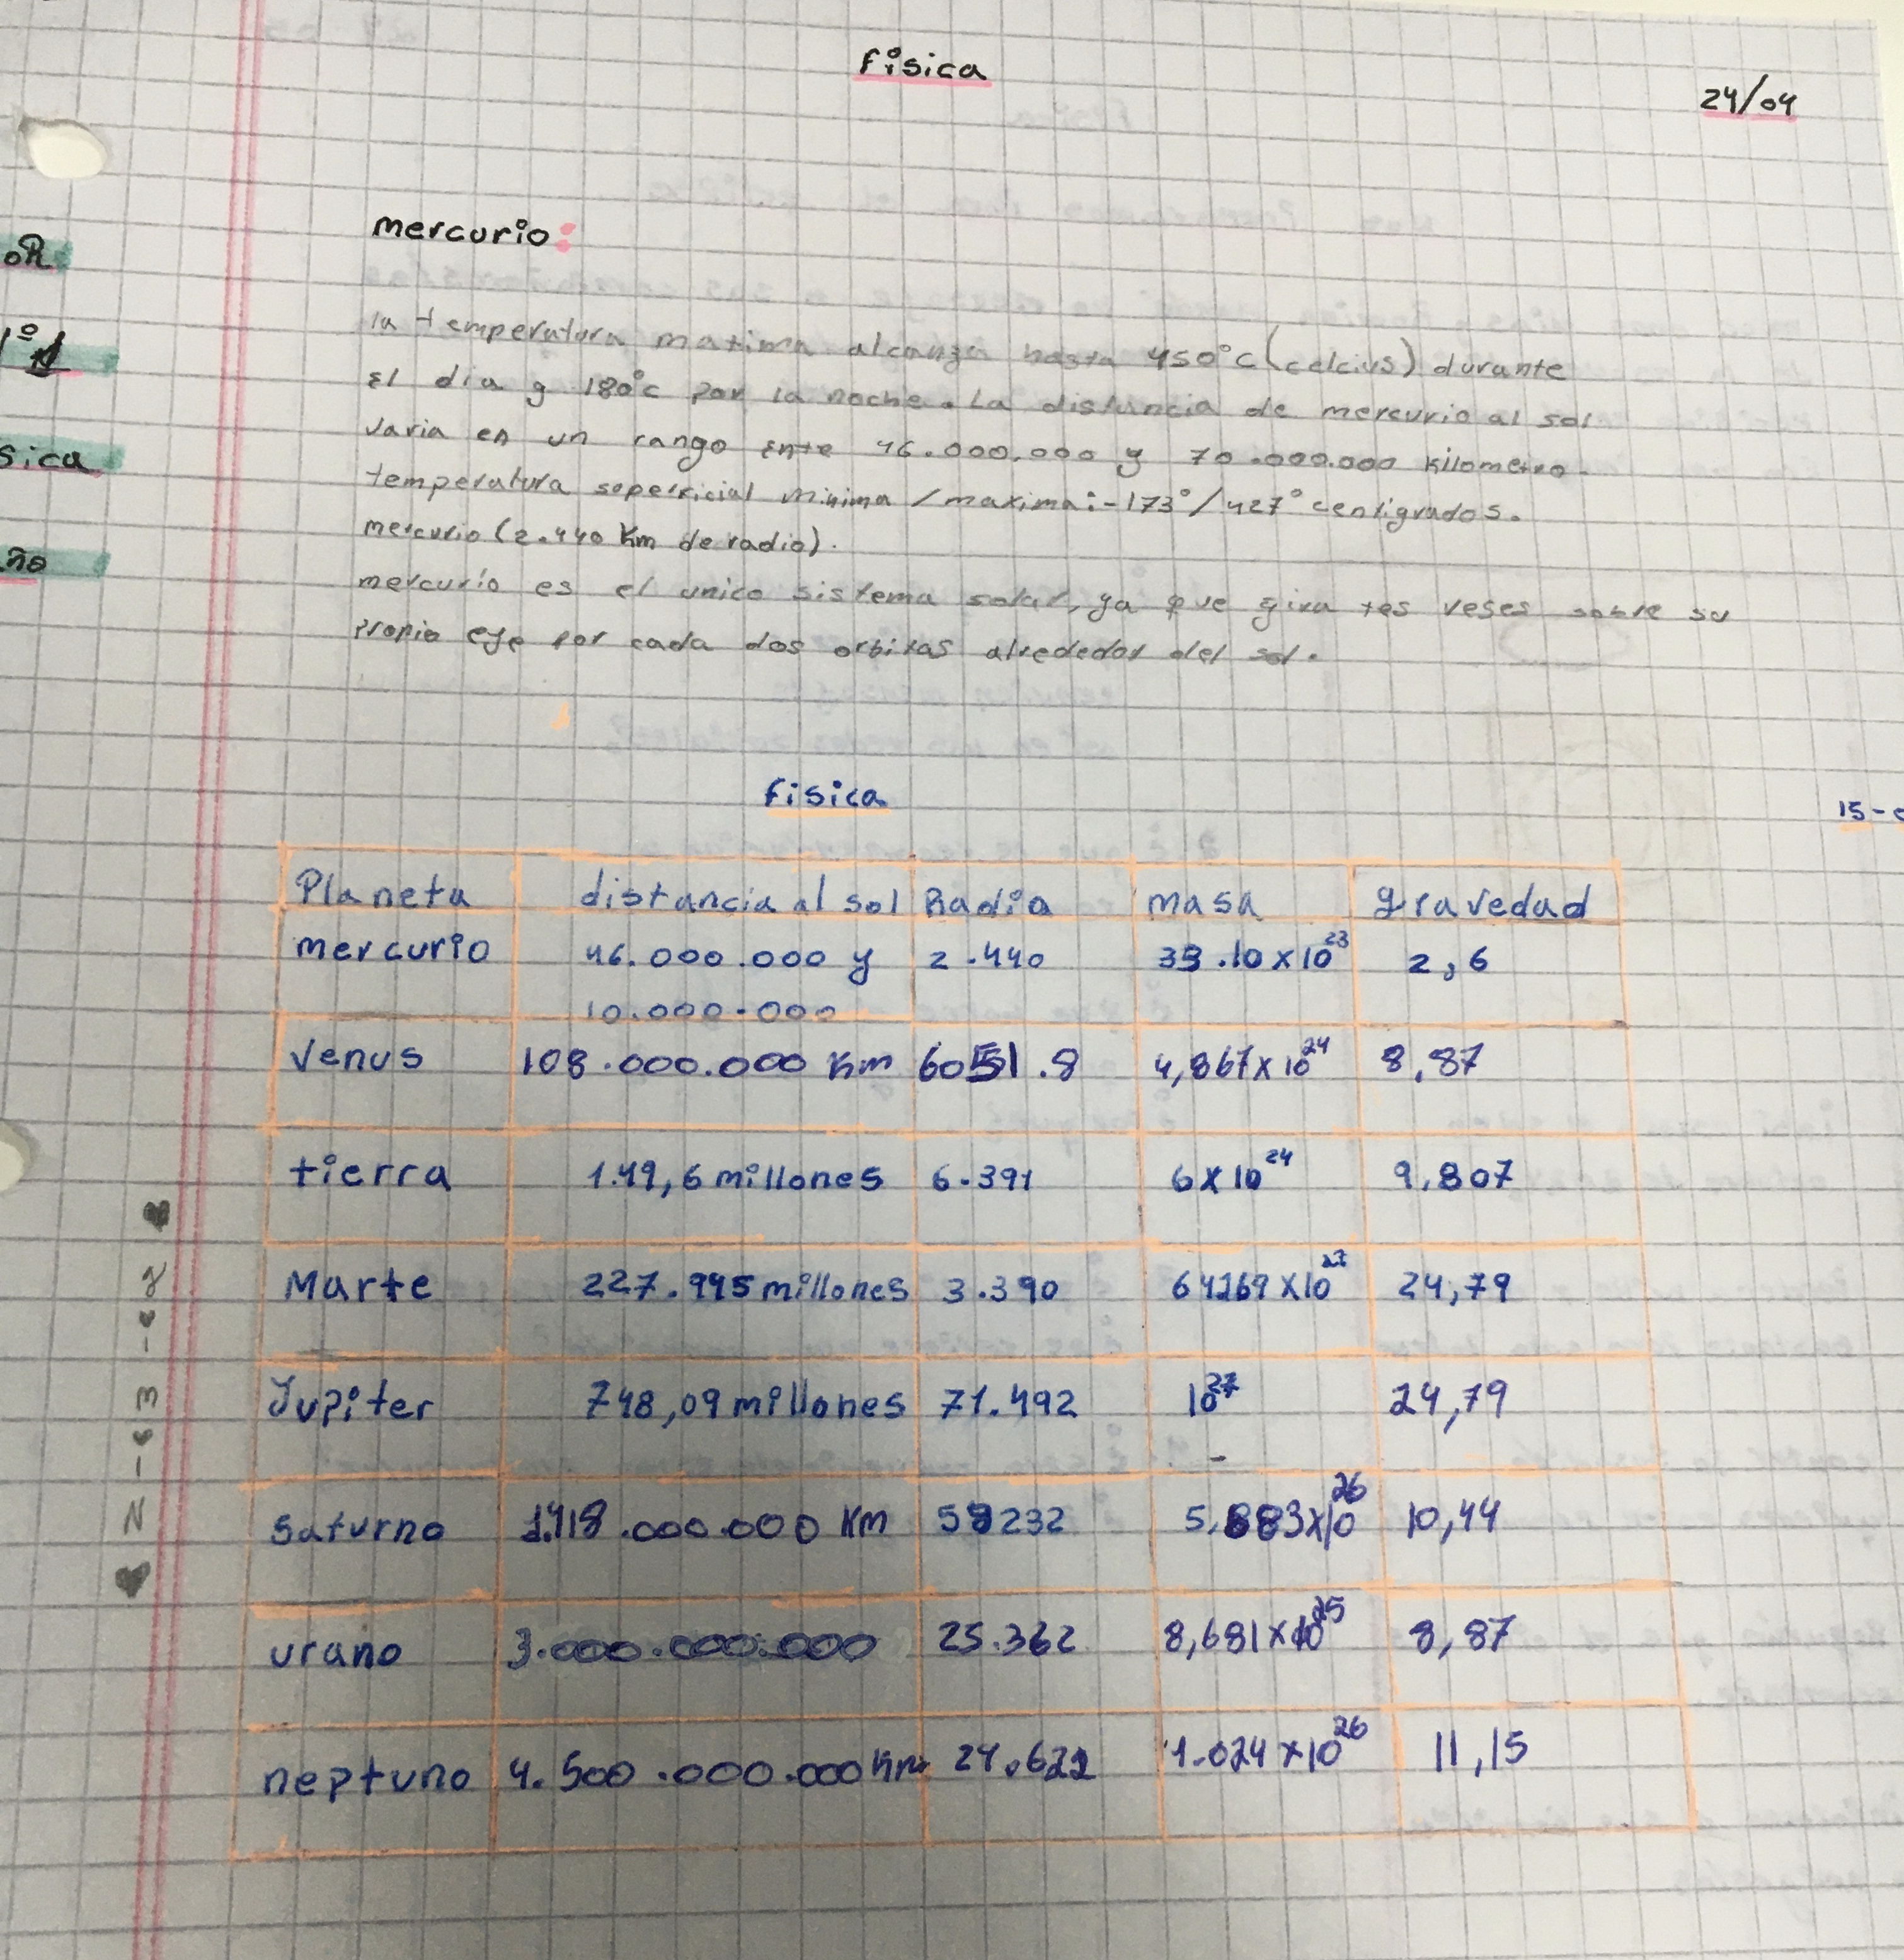 fisica
24/04
oR
1º1
sica
ño
mercurio:
la temperatura maxima alcanza hasta 450°C (celcius) durante
El dia y 180°c por la noche. La distancia de mercurio al sol
varia en un rango Ente 46.000.000 y 70.000.000 kilometro.
temperatura superficial minima / maxima: -173° / 427° centigrados.
mercurio (2.440 Km de radio).
mercurio es el unico sistema solar, ya que gira tes veses sobre su
propio eje por cada dos orbitas alrededor del sol.
fisica
15-
Planeta distancia al sol Radio masa gravedad
mercurio 46.000.000 y 2.440 33.10 x 10²³ 2,6
10.000.000
Venus 108.000.000 Km 6051.8 4,867 x 10²⁴ 8,87
tierra 1.49,6 millones 6.391 6 x 10²⁴ 9,807
Marte 227.995 millones 3.390 64169 x 10²⁷ 24,79
Jupiter 748,09 millones 71.492 10²⁷ 24,79
saturno 1.418.000.000 Km 58232 5,683x10²⁶ 10,44
urano 3.000.000.000 25.362 8,681 x 10²⁵ 8,87
neptuno 4.500.000.000 Km 24.622 1.024 x 10²⁶ 11,15
N - m -